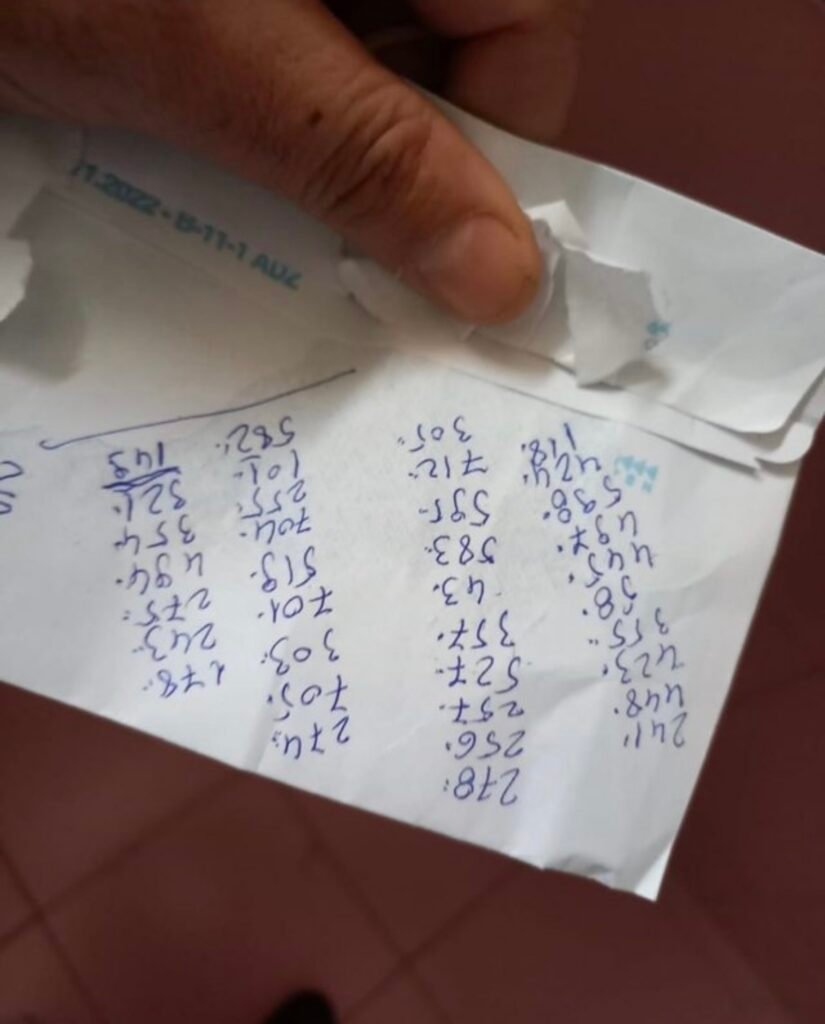 241"
448.
423.
355..
58.
445.
497.
598.
424.
118.
278:
256.
257.
527..
357.
43.
583.
595.
712:
305..
274:
705.
303.
701.
519.
704.
255.
101.
582:
178:
243.
275:
494.
354.
321.
149